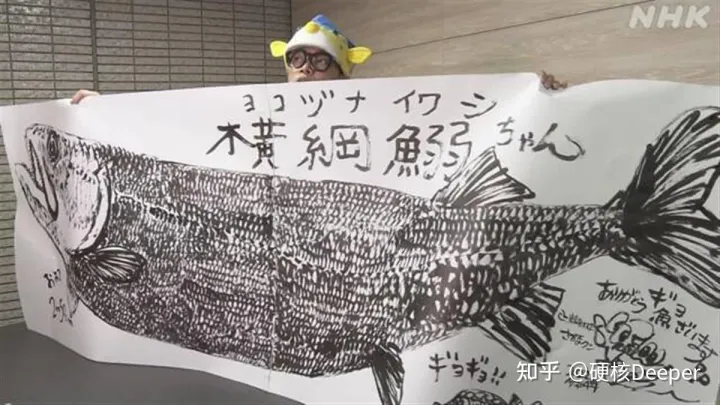 NHK
ヨコヅナイワシ
横綱鰯ちゃん
ありがとう
ギョ
魚ざいます
ギョギョ!!
知乎 @硬核Deeper